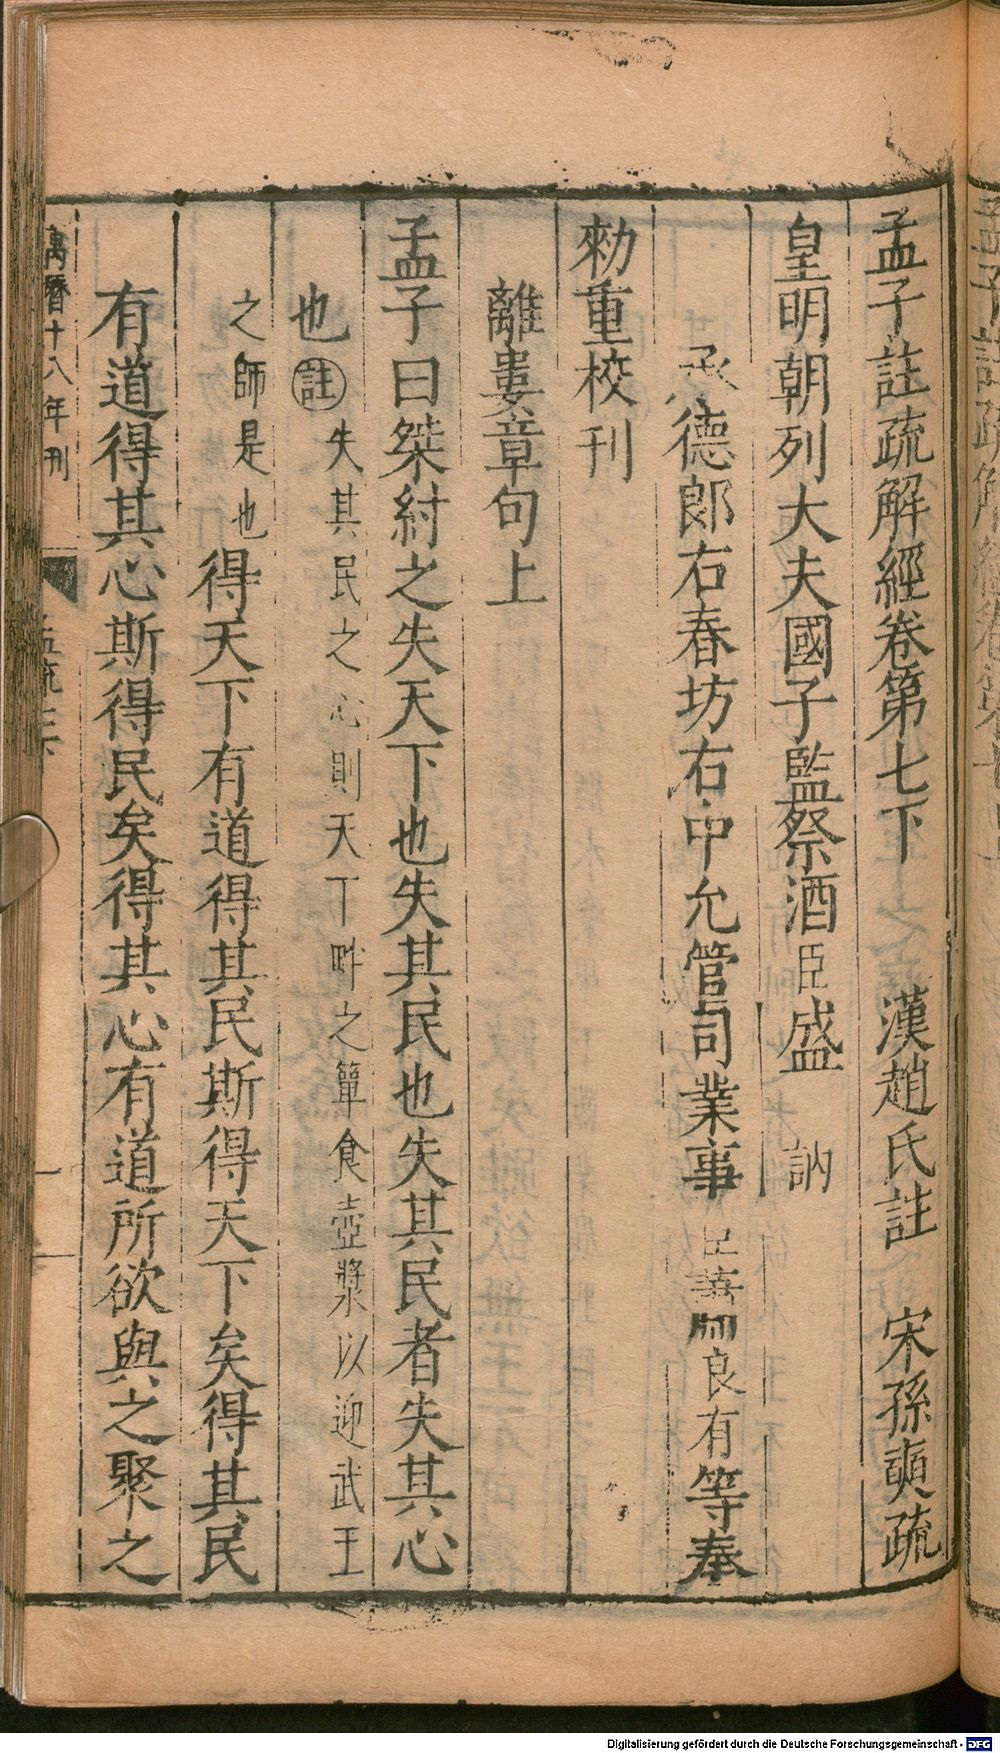 孟子註疏解經卷第七下 漢趙氏註 宋孫奭疏
皇明朝列大夫國子監祭酒臣盛 訥
承德郎右春坊右中允管司業事 良有等奉
勑重校刊
離婁章句上
孟子曰桀紂之失天下也失其民也失其民者失其心
也註失其民之心則天下畔之簞食壺漿以迎武王
之師是也得天下有道得其民斯得天下矣得其民
有道得其心斯得民矣得其心有道所欲與之聚之
萬曆十八年刊
Digitalisierung gefördert durch die Deutsche Forschungsgemeinschaft - DFG